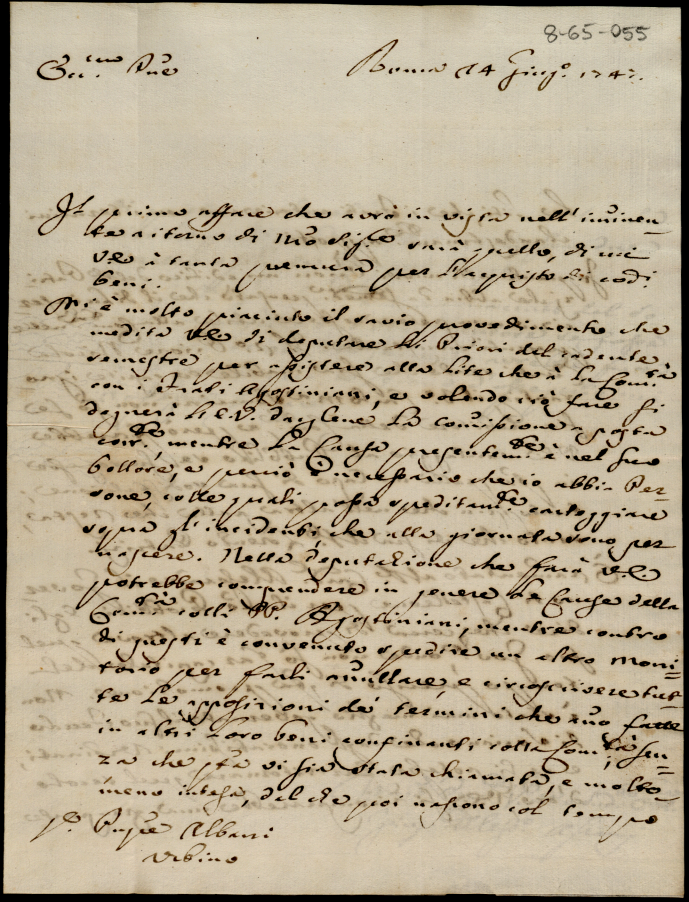 8-65-055
Ecc.mo Pne Roma 14 Giug.o 174
Il primo affare che avrà in vista nell' iminen=
te ritorno di sarà quello, di cui
V.E. à tanta premura per l'acquisto di codi.
beni.
Mi è molto piaciuto il savio provedimento che
medita V.E. di deputare li Priori del cadente
semestre per assistere alla lite che à la Com.tà
con i Frati Agostiniani, e volendo ciò fare si
degnerà l'E.V. dargliene la comissione a posta
corr.te, mentre la Causa presentem.te è nel suo
bollore, e perciò è necessario che io abbia Per=
sone, colle quali possa speditam.te carteggiare
sopra gl'incidenti, che alla giornata sono per
nascere. Nella deputazione che farà V.E.
potrebbe comprendere in genere le Cause della
Com.tà colli PP. Agostiniani, mentre contro
di questi è convenuto spedire un altro Moni=
torio per farli anullare, e circoscrivere tut=
te le apposizioni de' termini che àno fatte
in altri loro beni confinanti colla Com.tà sen=
za che q.ta vi sia stata chiamata, e molto
meno intesa, dal che poi nascono col tempo
Albani
Urbino